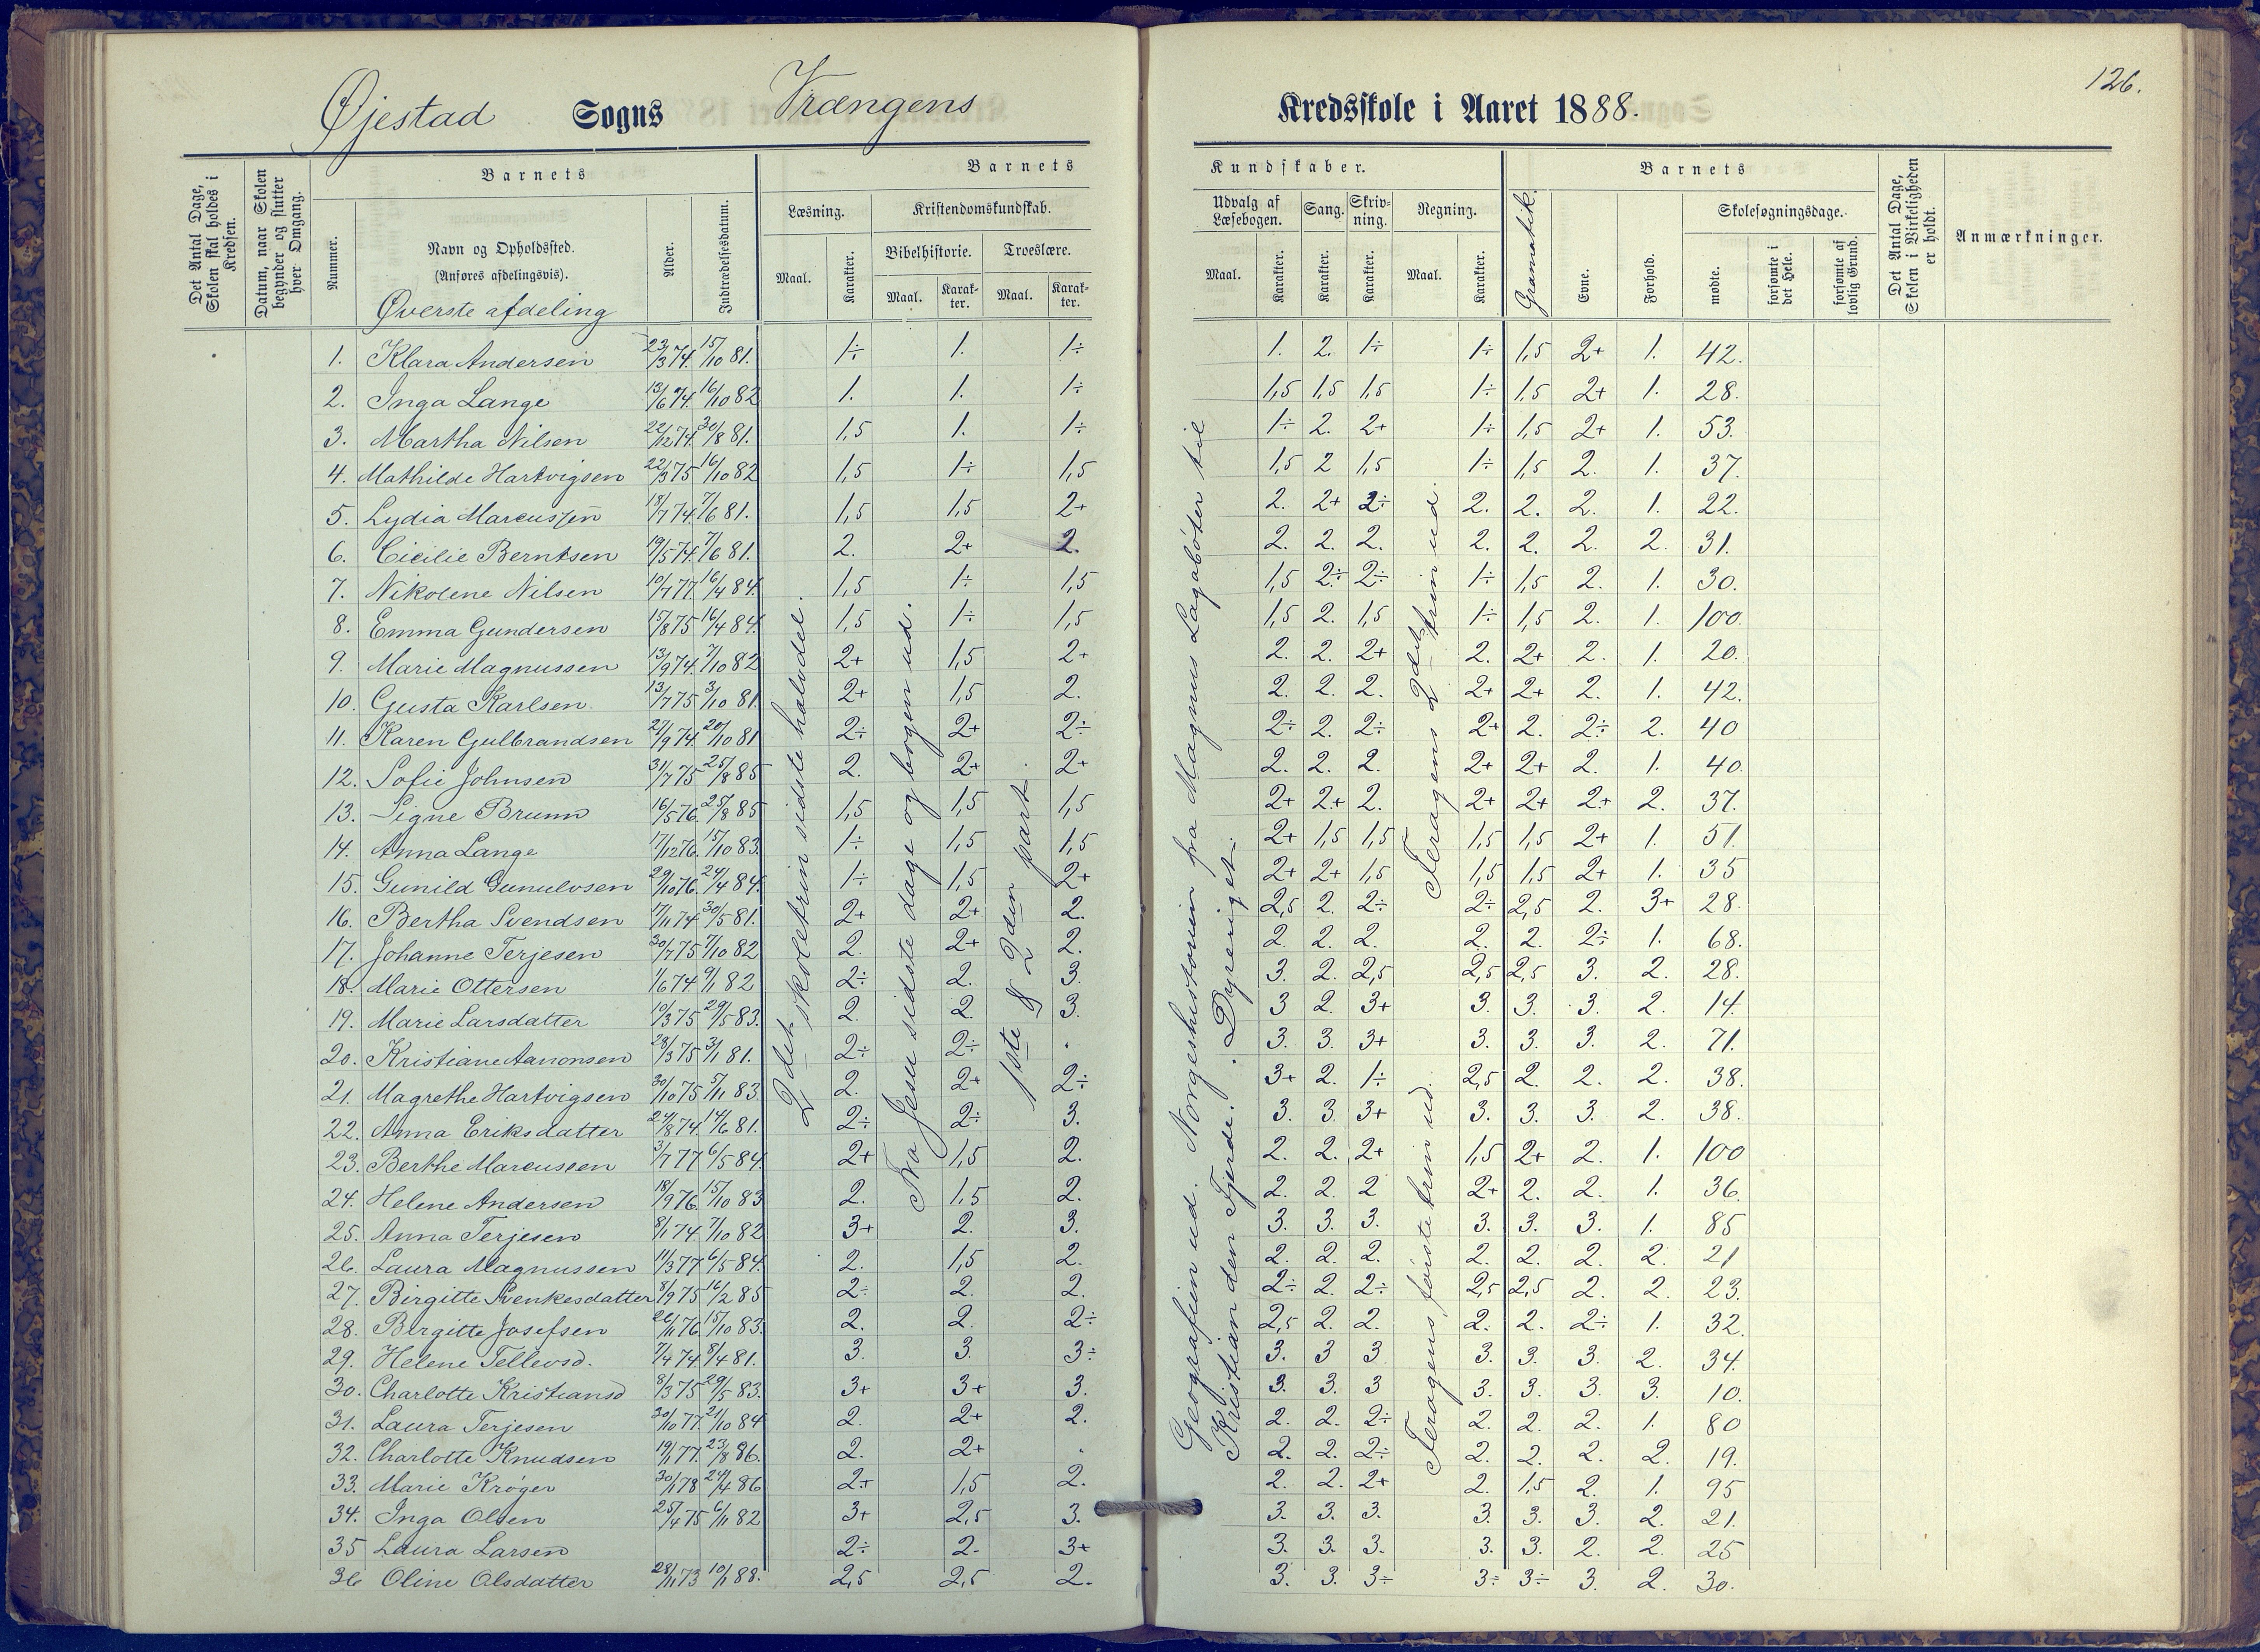 126.
Øjestad Sogns Vrængens Kredsskole i Aaret 1888.
Det Antal Dage, Skolen skal holdes i Kredsen.
Datum, naar Skolen begynder og slutter hver Omgang.
Barnets
Nummer.
Navn og Opholdssted.
(Anføres afdelingsvis).
Øverste afdeling
Alder.
Indtrædelsesdatum.
Barnets
Læsning.
Maal.
Karakter.
Kristendomskundskab.
Bibelhistorie.
Maal.
Karakter.
Troeslære.
Maal.
Karakter.
Kundskaber.
Udvalg af Læsebogen.
Maal.
Karakter.
Sang.
Karakter.
Skrivning.
Karakter.
Regning.
Maal.
Karakter.
Gramatik.
Barnets
Evne.
Forhold.
Skolesøgningsdage.
mødte.
forsømte i det Hele.
forsømte af lovlig Grund.
Det Antal Dage, Skolen i Virkeligheden er holdt.
Anmærkninger.
1. Klara Andersen 23/3 74. 15/10 81. 1÷ 1. 1÷ 1. 2. 1÷ 1÷ 1,5 2+ 1. 42.
2. Inga Lange 13/6 74. 16/10 82 1. 1. 1÷ 1,5 1,5 1,5 1÷ 1,5 2+ 1. 28.
3. Martha Nilsen 22/12 74. 30/8 81. 1,5 1. 1÷ 1÷ 2. 2+ 1÷ 1,5 2+ 1. 53.
4. Mathilde Hartvigsen 22/3 75 16/10 82 1,5 1÷ 1,5 1,5 2 1,5 1÷ 1,5 2. 1. 37.
5. Lydia Marcussen 18/7 74. 7/6 81. 1,5 1,5 2+ 2. 2+ 2÷ 2. 2. 2. 1. 22.
6. Cicilie Berntsen 19/5 74. 7/6 81. 2. 2+ 2. 2. 2. 2. 2. 2. 2. 2. 31.
7. Nikolene Nilsen 10/7 77. 16/4 84. 1,5 1÷ 1,5 1,5 2÷ 2÷ 1÷ 1,5 2. 1. 30.
8. Emma Gundersen 15/8 75 16/4 84. 1,5 1÷ 1,5 1,5 2. 1,5 1÷ 1,5 2. 1. 100.
9. Marie Magnussen 13/9 74. 7/10 82 2+ 1,5 2+ 2. 2. 2+ 2. 2+ 2. 1. 20.
10. Gusta Karlsen 13/7 75 3/10 81 2+ 1,5 2. 2. 2. 2. 2+ 2+ 2. 1. 42.
11. Karen Gulbrandsen 27/9 74. 20/10 81 2÷ 2+ 2÷ 2÷ 2. 2÷ 2+ 2. 2÷ 2. 40
12. Sofie Johnsen 31/7 75 25/8 85 2. 2+ 2+ 2. 2. 2. 2+ 2+ 2. 1. 40.
13. Signe Brunn 16/5 76. 25/8 85 1,5 1,5 1,5 2+ 2+ 2. 2+ 2+ 2+ 2. 37.
14. Anna Lange 17/12 76. 15/10 83. 1÷ 1,5 1,5 2+ 1,5 1,5 1,5 1,5 2+ 1. 51.
15. Gunild Gunulvsen 29/10 76. 24/4 84. 1÷ 1,5 2+ 2+ 2+ 1,5 1,5 1,5 2+ 1. 35
16. Bertha Svendsen 17/11 74 30/5 81. 2+ 2+ 2. 2,5 2. 2÷ 2÷ 2,5 2. 3+ 28.
17. Johanne Terjesen 30/7 75 7/10 82 2. 2+ 2. 2. 2. 2. 2. 2. 2÷ 1. 68.
18. Marie Ottersen 1/6 74. 9/1 82 2÷ 2. 3. 3. 2. 2,5 2,5 2,5 3. 2. 28.
19. Marie Larsdatter 10/3 75 29/5 83. 2. 2. 3. 3 2. 3+ 3. 3. 3. 2. 14.
20. Kristiane Aanonsen 28/3 75 3/1 81. 2÷ 2÷ . 3. 3. 3+ 3. 3. 3. 2. 71.
21. Magrethe Hartvigsen 30/10 75 5/11 83. 2. 2+ 2÷ 3+ 2. 1÷ 2,5 2. 2. 2. 38.
22. Anna Eriksdatter 24/8 74. 14/6 81. 2÷ 2÷ 3. 3. 3. 3+ 3. 3. 3. 2. 38.
23. Berthe Marcussen 3/7 77 6/5 84. 2+ 1,5 2. 2. 2. 2+ 1,5 2+ 2. 1. 100
24. Helene Andersen 18/9 76. 15/10 83 2. 1,5 2. 2. 2. 2 2+ 2. 2. 1. 36.
25. Anna Terjesen 8/1 74. 7/10 82 3+ 2. 3. 3. 3. 3. 3. 3. 3. 1. 85
26. Laura Magnussen 11/3 77 6/5 84. 2. 1,5 2. 2. 2. 2. 2. 2. 2. 2. 21
27. Birgitte Svenkesdatter 8/9 75 16/2 85 2÷ 2. 2. 2÷ 2. 2÷ 2,5 2,5 2. 2. 23.
28. Birgitte Josefsen 26/11 76. 15/10 83. 2. 2. 2÷ 2,5 2. 2. 2. 2. 2÷ 1. 32.
29. Helene Tellevsd. 7/4 74. 8/4 81. 3. 3. 3÷ 3. 3 3 3. 3. 3. 2. 34.
30. Charlotte Kristiansd 8/3 75 29/5 83. 3+ 3+ 3. 3. 3. 3 3. 3. 3. 3. 10.
31. Laura Terjesen 30/10 77. 21/10 84 2. 2+ 2. 2. 2. 2÷ 2. 2. 2. 1. 80
32. Charlotte Knudsen 19/1 77. 23/8 86. 2. 2+ . 2. 2. 2÷ 2. 2. 2. 2. 19.
33. Marie Krøger 30/1 78 24/4 86 2+ 1,5 2. 2. 2. 2+ 2. 1,5 2. 1. 95
34. Inga Olsen 25/4 75 6/11 82 3+ 2,5 3. 3. 3. 3. 3. 3. 3. 2. 21.
35 Laura Larsen 2÷ 2. 3+ 3. 3. 3. 3. 3. 2. 2. 25
36 Oline Olsdatter 28/11 73 10/1 88. 2,5 2,5 2. 3. 3. 3÷ 3÷ 3÷ 3. 2. 30.
2det skoletrin sidste halvdel.
Fra Jesu sidste dage og bogen ud.
1ste & 2den part.
Geografien ud. Norgeshistorien fra Magnus Lagabøter til
Kristian den Fjerde. Dyreriget.
Feragens første trin ud.
Feragens 2det trin ud.